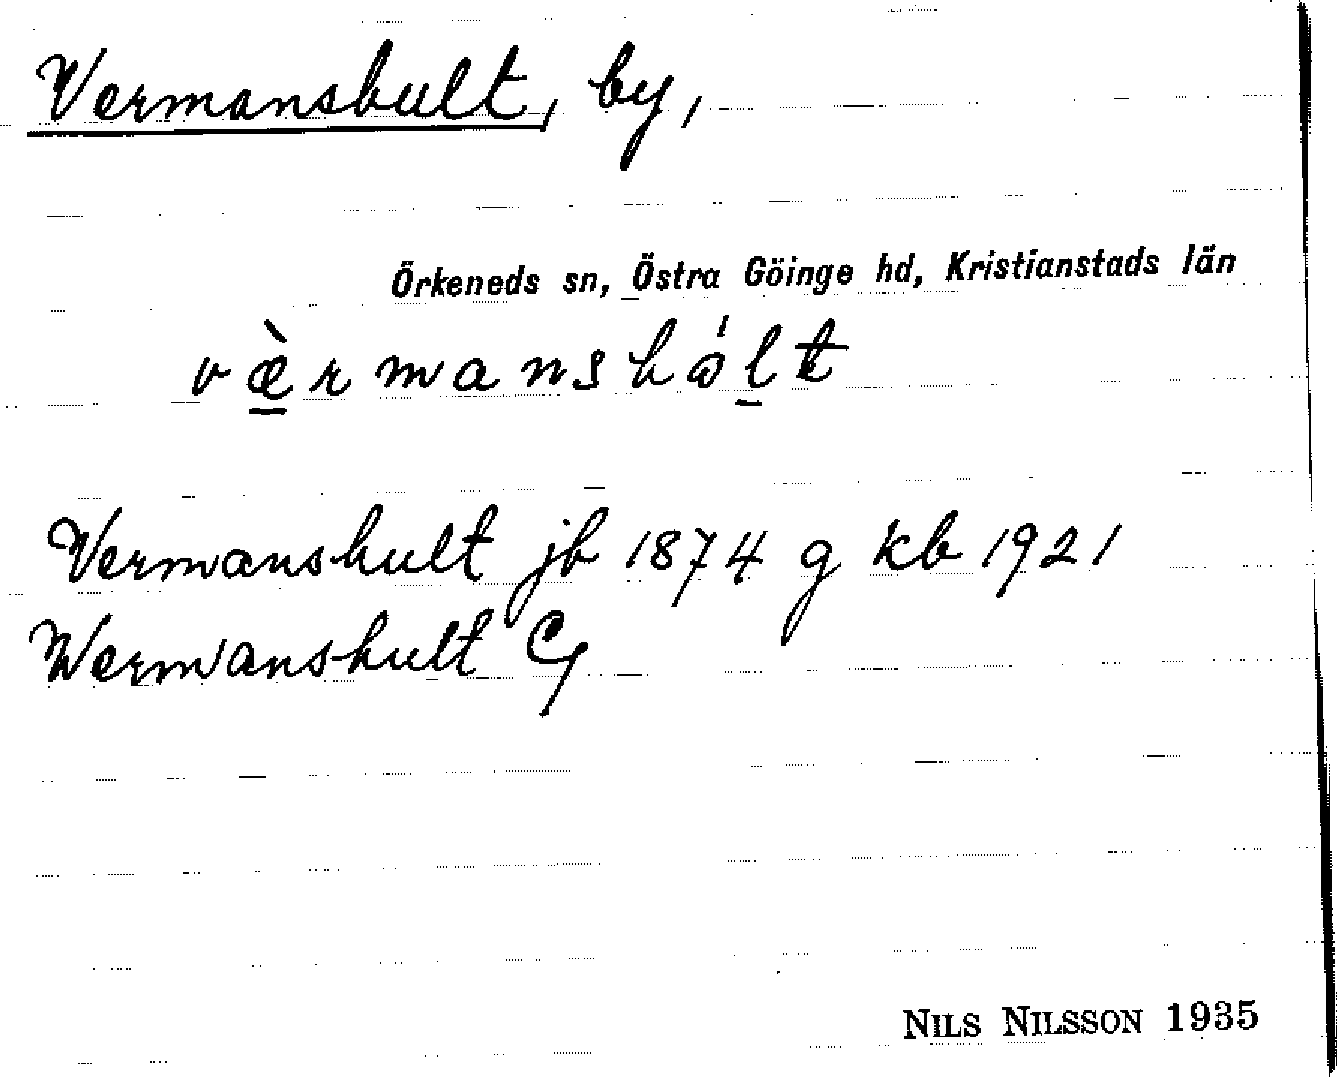 Vermanshult, by,
Örkeneds sn, Östra Göinge hd, Kristianstads län
væ̀rmanshɷ́lt
Vermanshult jb 1874 g kb 1921
Wermanshult G
NILS NILSSON 1935